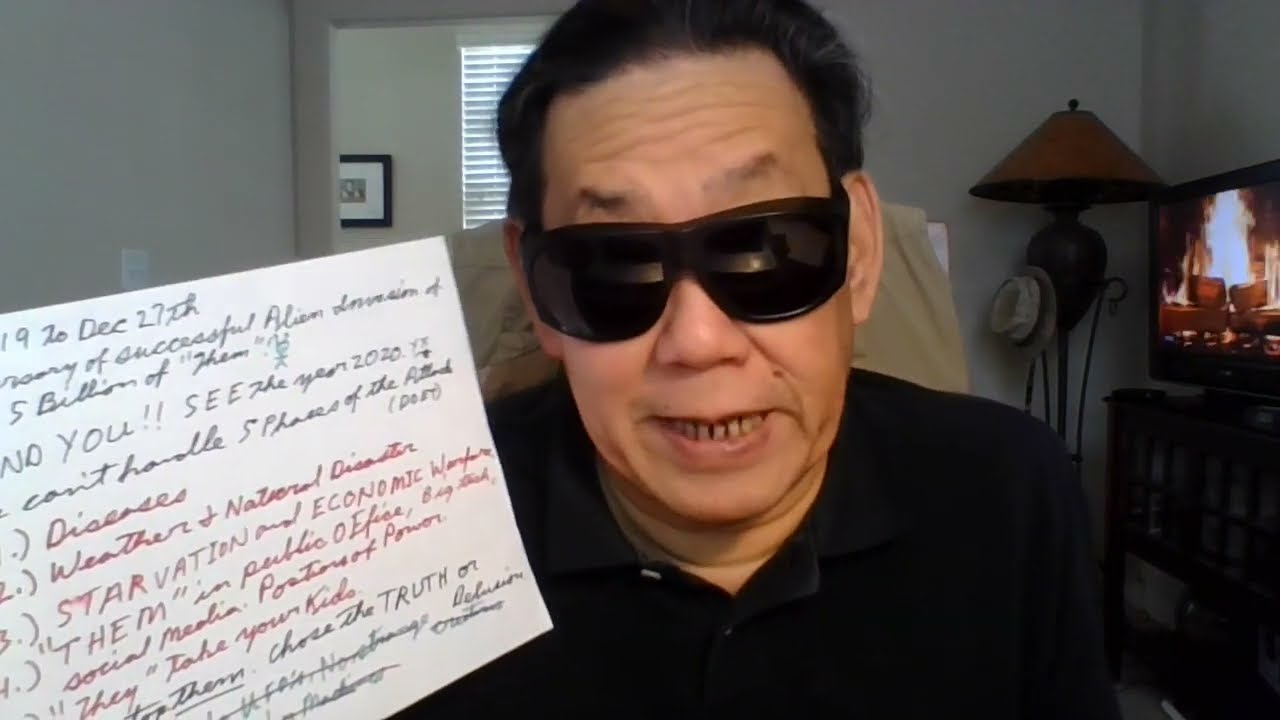 19 to Dec 27th
ersary of successful Alien Invasion of
5 Billion of "Them".
ND YOU!! SEE the year 2020.
can't handle 5 Phases of the Attack
1.) Diseases
2.) Weather & Natural Disaster
3.) STARVATION and ECONOMIC Warfare
4.) "THEM" in public Office, Big tech,
social media. Positions of Power.
"They" Take your Kids.
top them. chose the TRUTH or
Delusion